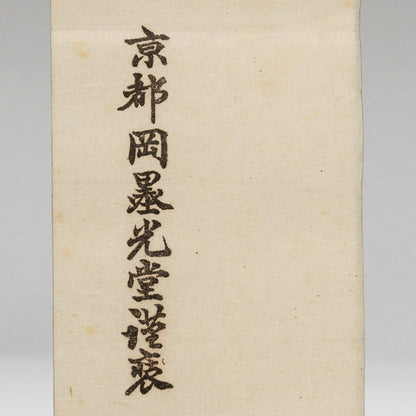 京都岡墨光堂謹裱